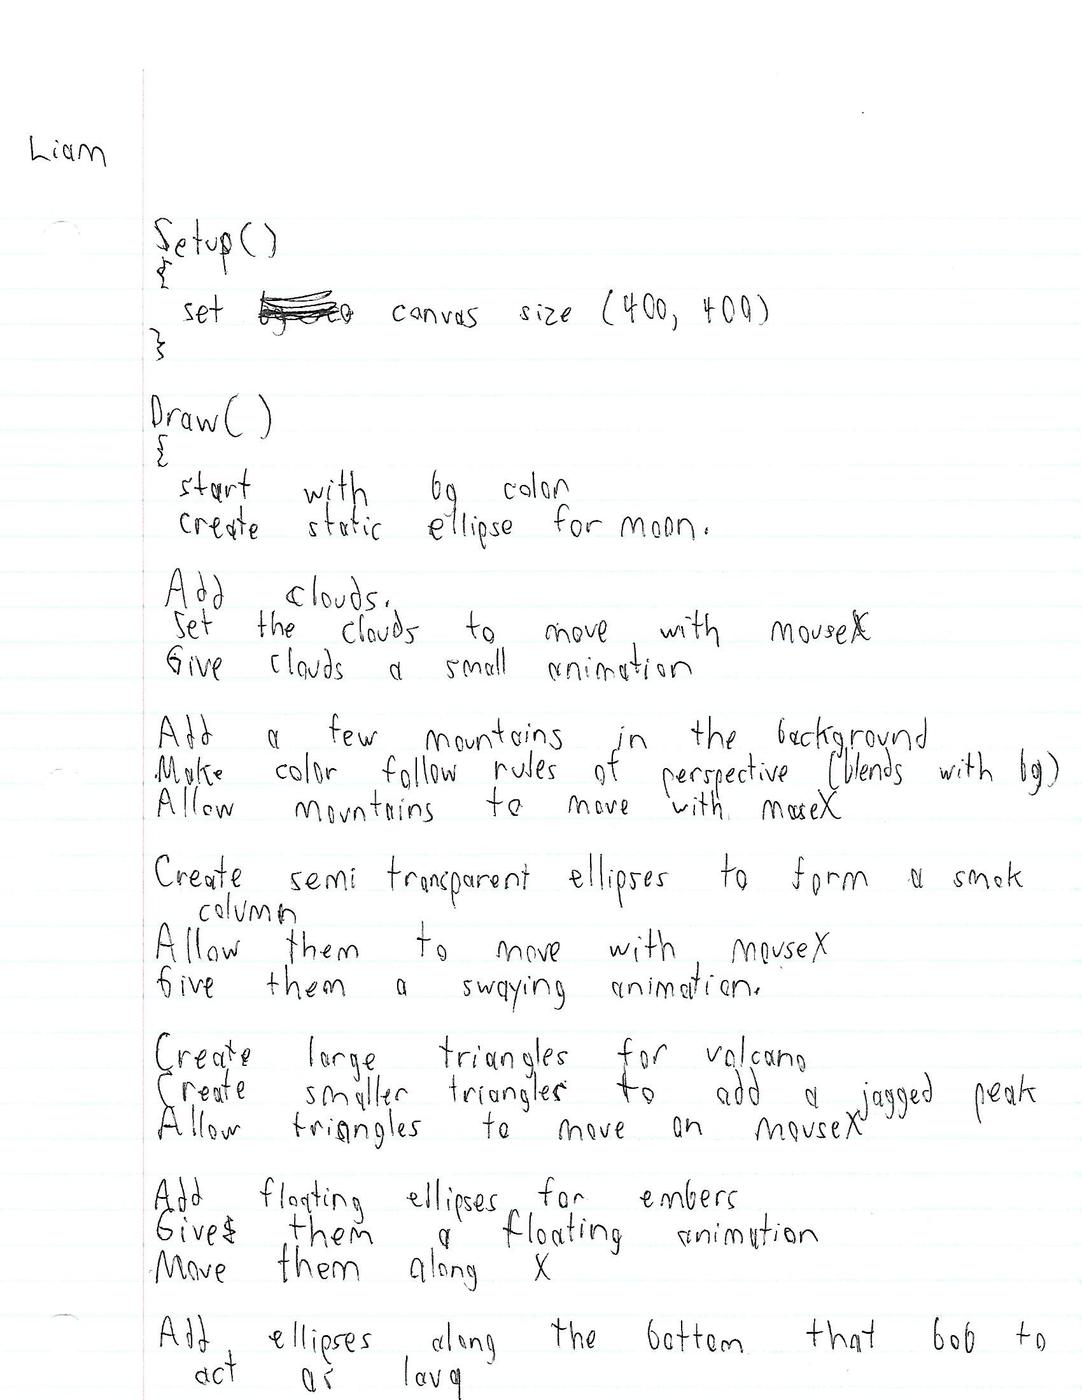 Liam
Setup()
{
set canvas size (400, 400)
}
Draw()
{
start with bg color
create static ellipse for moon.
Add clouds.
Set the clouds to move with mouseX
Give clouds a small animation
Add a few mountains in the background
Make color follow rules of perspective (blends with bg)
Allow mountains to move with moseX
Create semi transparent ellipses to form a smok
column
Allow them to move with mouseX
Give them a swaying animation.
Create large triangles for volcano
Create smaller triangles to add a jagged peak
Allow triangles to move on mouseX
Add floating ellipses for embers
Give them a floating animation
Move them along X
Add ellipses along the bottom that bob to
act as lava